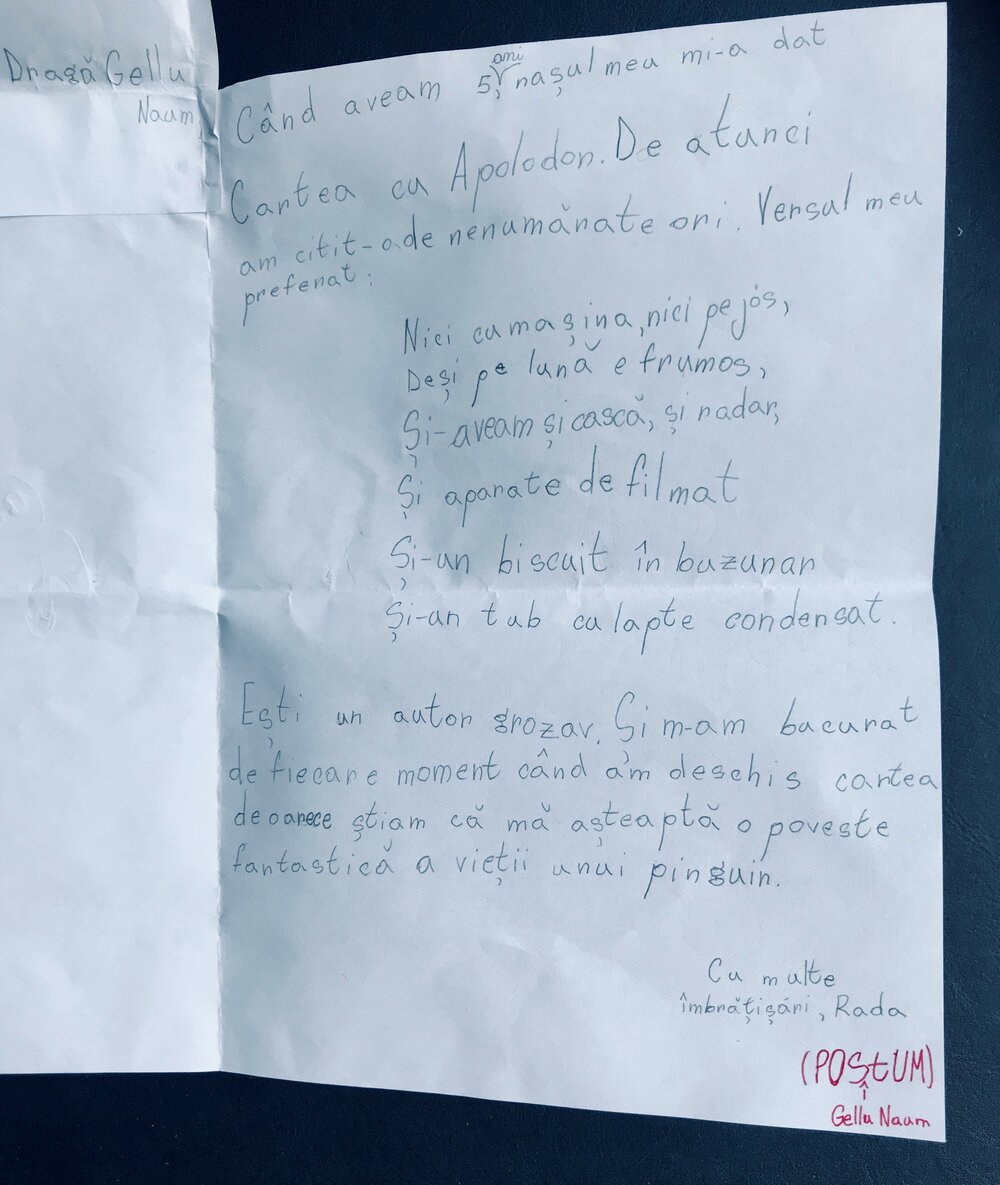 Dragă Gellu
Naum,
ani
Când aveam 5, nașul meu mi-a dat
Cartea cu Apolodor. De atunci
am citit-o de nenumărate ori. Versul meu
preferat:
Nici cu mașina, nici pe jos,
Deși pe lună e frumos,
Și-aveam și cască, și radar,
Și aparate de filmat
Și-un biscuit în buzunar
Și-un tub cu lapte condensat.
Ești un autor grozav. Și m-am bucurat
de fiecare moment când am deschis cartea
deoarece știam că mă așteaptă o poveste
fantastică a vieții unui pinguin.
Cu multe
îmbrățișări, Rada
(POȘtUM)
Gellu Naum